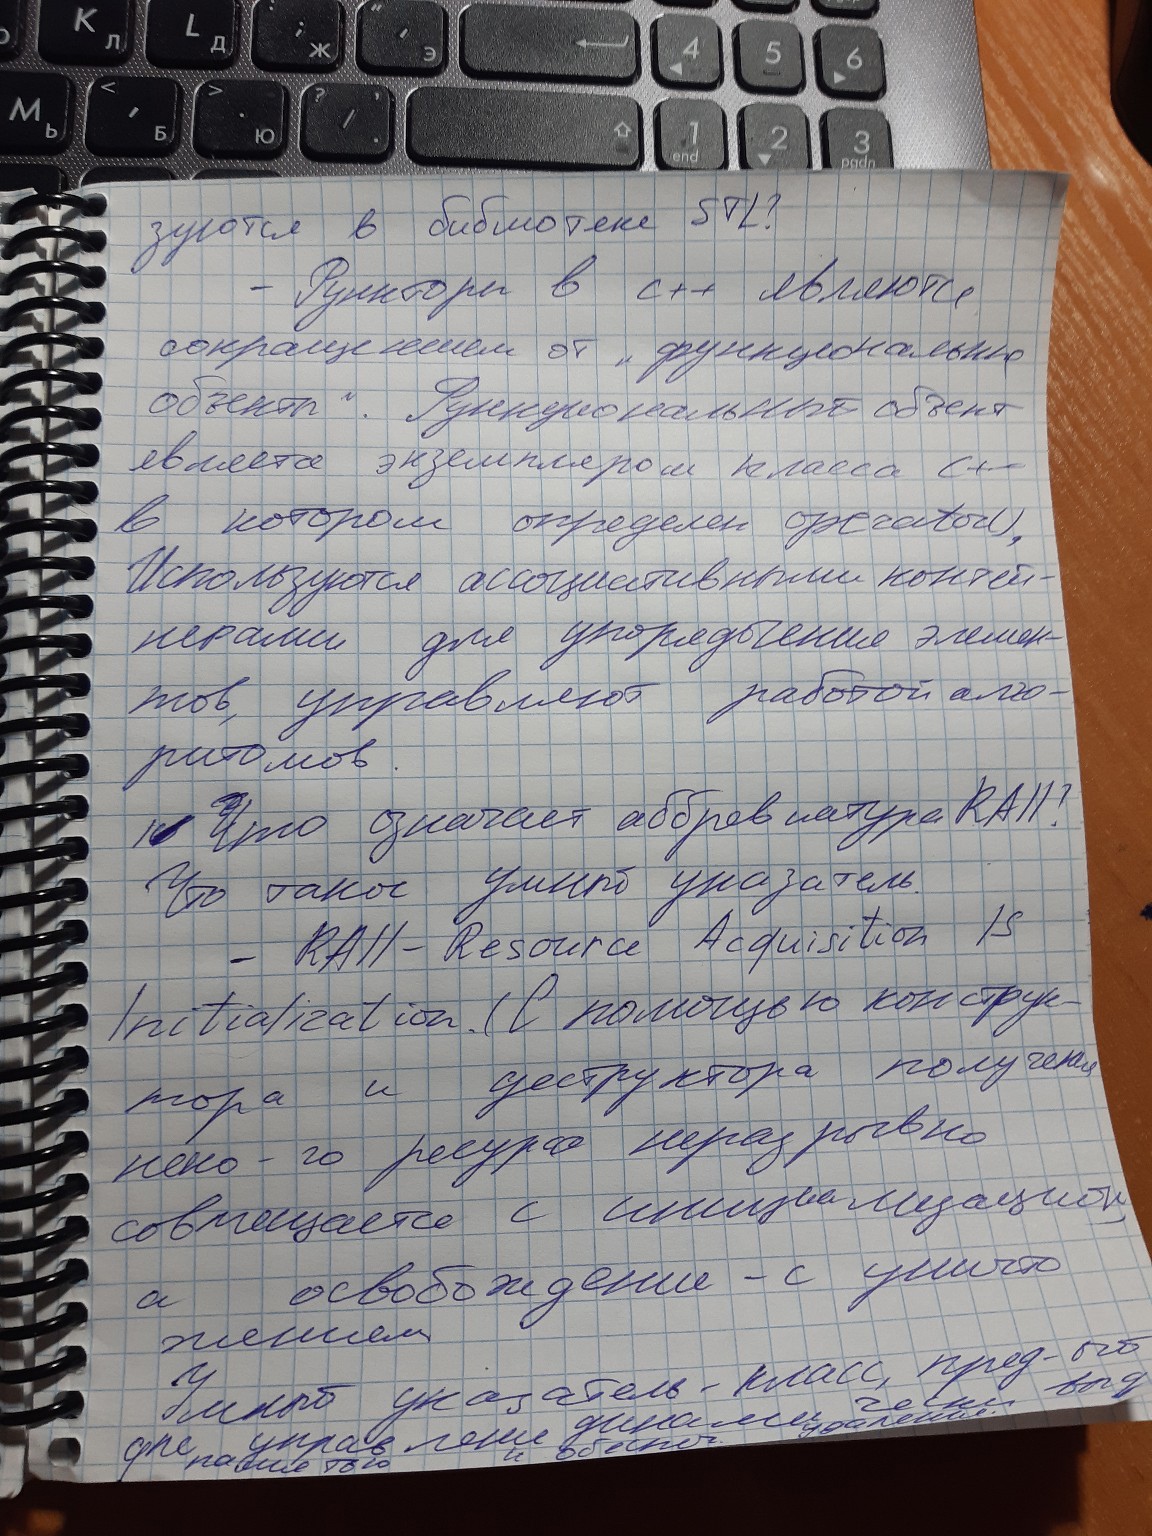 K Л
L Д
; Ж
' Э
4 5 6
М Ь
< , Б
> . Ю
? / , .
1 end 2 3 pgdn
зуются в библиотеке STL?
- Функторы в с++ являются
сокращением от „функциональные
объекты“. Функциональный объект
является экземпляром класса с++
в котором определен operator(),
Используются ассоциативными контей-
нерами для упорядочения элемен-
тов, управляют работой алго-
ритомов.
Что означает аббревиатура RAII?
Что такое умный указатель.
- RAII - Resource Acquisition Is
Initialization. (С помощью конструк-
тора и деструктора получение
неко-го ресурса неразрывно
совмещается с инициализацией,
а освобождение - с уничто
жением
Умный указатель - класс, пред-ый
для управлени динамически выд
памятью и обеспеч. удаление.